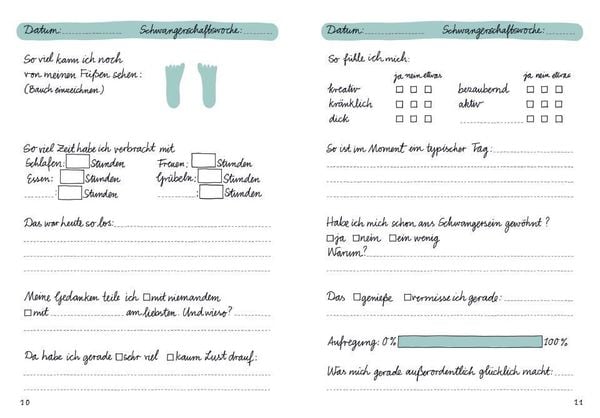 Datum: Schwangerschaftswoche:
So viel kann ich noch
von meinen Füßen sehen:
(Bauch einzeichnen)
So viel Zeit habe ich verbracht mit
Schlafen: Stunden Freuen: Stunden
Essen: Stunden Grübeln: Stunden
: Stunden : Stunden
Das war heute so los:
Meine Gedanken teile ich mit niemandem
mit am liebsten. Und wieso?
Da habe ich gerade sehr viel kaum Lust drauf:
10
Datum: Schwangerschaftswoche:
So fühle ich mich:
ja nein etwas ja nein etwas
kreativ bezaubernd
kränklich aktiv
dick
So ist im Moment ein typischer Tag:
Habe ich mich schon ans Schwangersein gewöhnt?
ja nein ein wenig
Warum?
Das genieße vermisse ich gerade:
Aufregung: 0% 100%
Was mich gerade außerordentlich glücklich macht:
11